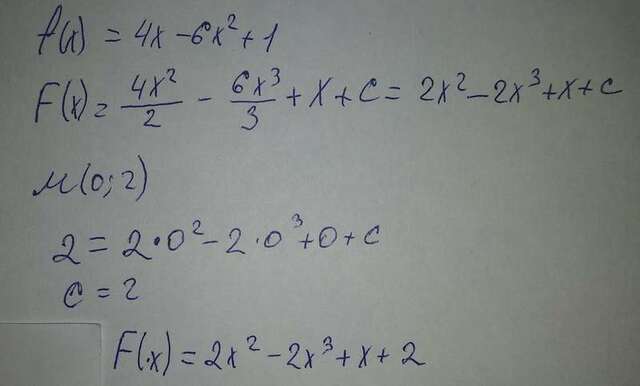 f(x) = 4x - 6x² + 1
F(x) = 4x²/2 - 6x³/3 + x + c = 2x² - 2x³ + x + c
M(0; 2)
2 = 2·0² - 2·0³ + 0 + c
c = 2
F(x) = 2x² - 2x³ + x + 2